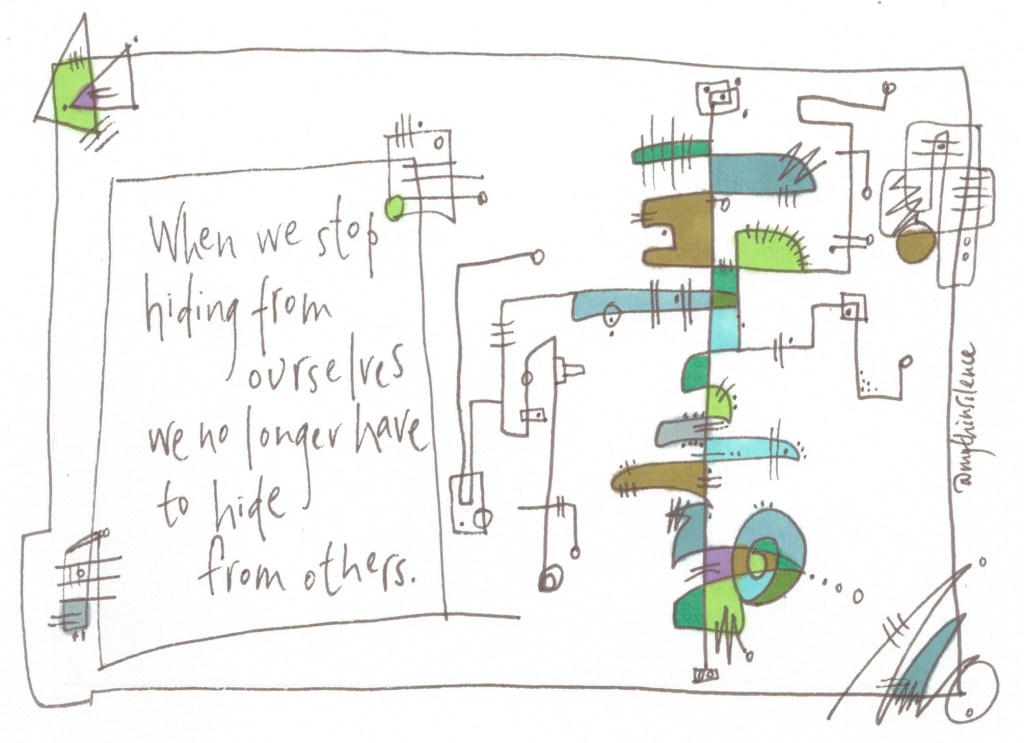 When we stop
hiding from
ourselves
we no longer have
to hide
from others.
@mythinsilence